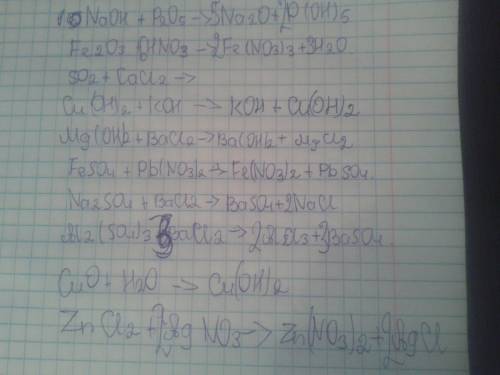 10NaOH + P2O5 -> 5Na2O + 2P(OH)5
Fe2O3 6HNO3 -> 2Fe(NO3)3 + 3H2O
SO2 + CaCl2 ->
Cu(OH)2 + KOH -> KOH + Cu(OH)2
Mg(OH)2 + BaCl2 -> Ba(OH)2 + MgCl2
FeSO4 + Pb(NO3)2 -> Fe(NO3)2 + PbSO4
Na2SO4 + BaCl2 -> BaSO4 + 2NaCl
Al2(SO4)3 3BaCl2 -> 2AlCl3 + 3BaSO4
CuO + H2O -> Cu(OH)2
ZnCl2 + 2AgNO3 -> Zn(NO3)2 + 2AgCl